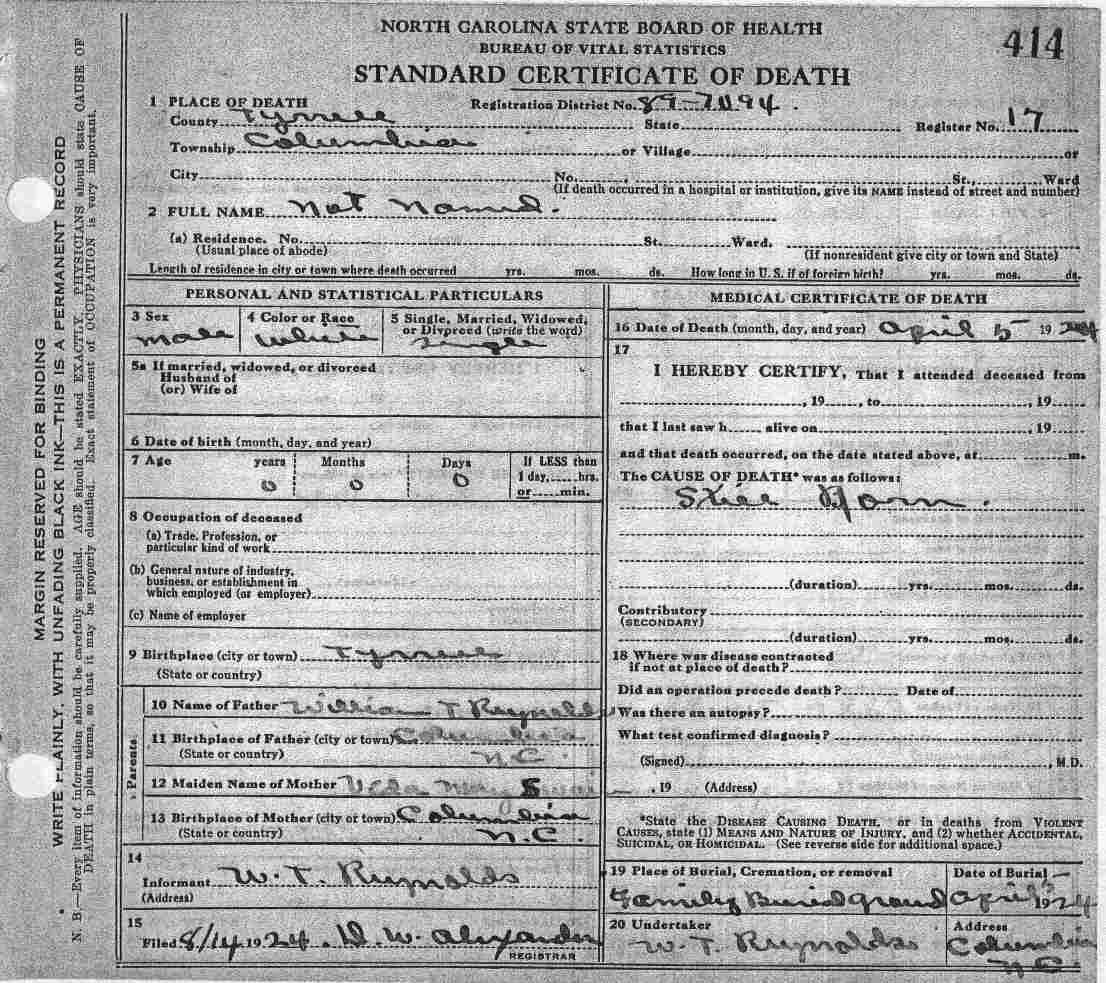 NORTH CAROLINA STATE BOARD OF HEALTH
BUREAU OF VITAL STATISTICS
414
STANDARD CERTIFICATE OF DEATH
1 PLACE OF DEATH Registration District No. 89-7094.
County Tyrrell State Register No. 17
Township Columbia or Village or
City No. , St., Ward
(If death occurred in a hospital or institution, give its NAME instead of street and number)
2 FULL NAME Not Named.
(a) Residence. No. St. Ward.
(Usual place of abode) (If nonresident give city or town and State)
Length of residence in city or town where death occurred yrs. mos. ds. How long in U. S. if of foreign birth? yrs. mos. ds.
PERSONAL AND STATISTICAL PARTICULARS
3 Sex 4 Color or Race 5 Single, Married, Widowed,
or Divorced (write the word)
Male White Single
5a If married, widowed, or divorced
Husband of
(or) Wife of
6 Date of birth (month, day, and year)
7 Age years Months Days If LESS than
1 day, hrs.
or min.
0 0 0
8 Occupation of deceased
(a) Trade, Profession, or
particular kind of work
(b) General nature of industry,
business, or establishment in
which employed (or employer)
(c) Name of employer
9 Birthplace (city or town) Tyrrell
(State or country)
Parents
10 Name of Father William T Reynolds
11 Birthplace of Father (city or town) Columbia
(State or country) N.C.
12 Maiden Name of Mother Swain
13 Birthplace of Mother (city or town) Columbia
(State or country) N.C.
14
Informant W. T. Reynolds
(Address)
15
Filed 8/14 1924. W. Alexander
REGISTRAR
MEDICAL CERTIFICATE OF DEATH
16 Date of Death (month, day, and year) April 5 1924
17
I HEREBY CERTIFY, That I attended deceased from
, 19 , to , 19
that I last saw h alive on , 19
and that death occurred, on the date stated above, at m.
The CAUSE OF DEATH* was as follows:
Still Born.
(duration) yrs. mos. ds.
Contributory
(SECONDARY)
(duration) yrs. mos. ds.
18 Where was disease contracted
if not at place of death?
Did an operation precede death? Date of
Was there an autopsy?
What test confirmed diagnosis?
(Signed) , M.D.
, 19 (Address)
*State the DISEASE CAUSING DEATH, or in deaths from VIOLENT
CAUSES, state (1) MEANS AND NATURE OF INJURY, and (2) whether ACCIDENTAL,
SUICIDAL, OR HOMICIDAL. (See reverse side for additional space.)
19 Place of Burial, Cremation, or removal Date of Burial
Family Burial ground April 1924
20 Undertaker Address
W. T. Reynolds Columbia
N.C.
MARGIN RESERVED FOR BINDING
WRITE PLAINLY, WITH UNFADING BLACK INK—THIS IS A PERMANENT RECORD
N. B.—Every item of information should be carefully supplied. AGE should be stated EXACTLY. PHYSICIANS should state CAUSE OF
DEATH in plain terms, so that it may be properly classified. Exact statement of OCCUPATION is very important.